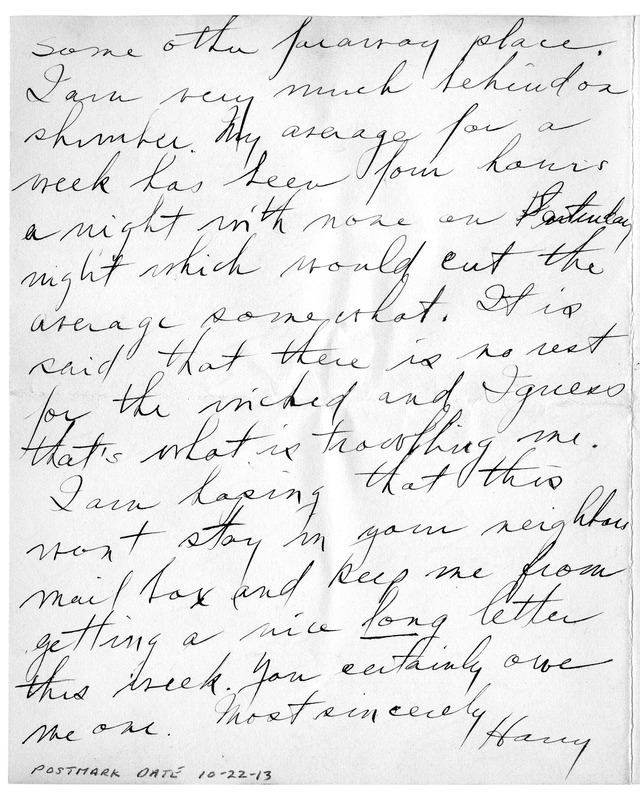 some other faraway place.
I am very much behind on
slumber. My average for a
week has been four hours
a night with none on Saturday
night which would cut the
average somewhat. It is
said that there is no rest
for the wicked and I guess
that's what is troubling me.
I am hoping that this
won't stay in your neighbors
mail box and keep me from
getting a nice long letter
this week. You certainly owe
me one. Most sincerely
Harry
POSTMARK DATE 10-22-13